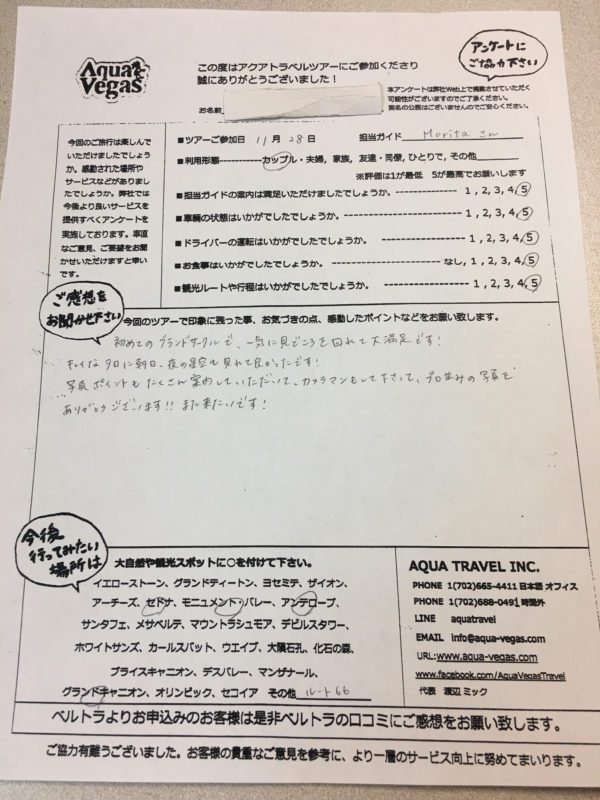 Aqua Vegas
この度はアクアトラベルツアーにご参加くださり
誠にありがとうございました！
アンケートに
ご協力下さい
お名前
本アンケートは弊社Web上で掲載させていただく
可能性がございますのでご了承ください。
実名の公表はございませんのでご安心ください。
今回のご旅行は楽しんで
いただけましたでしょう
か。感動された場所や
サービスなどがありまし
たでしょうか。弊社では
今後より良いサービスを
提供すべくアンケートを
実施しております。率直
なご意見、ご要望をお聞
かせいただけますと幸い
です。
■ツアーご参加日 11月 28日 担当ガイド Moritaさん
■利用形態-----------カップル・夫婦, 家族, 友達・同僚, ひとりで, その他
※評価は1が最低 5が最高でお願いします
■担当ガイドの案内は満足いただけましたでしょうか。 ---------- 1 , 2, 3, 4, 5
■車輌の状態はいかがでしたでしょうか。 ---------- 1 , 2, 3, 4, 5
■ドライバーの運転はいかがでしたでしょうか。 ---------- 1 , 2, 3, 4, 5
■お食事はいかがでしたでしょうか。 ---------- なし, 1, 2, 3, 4, 5
■観光ルートや行程はいかがでしたでしょうか。 ---------- 1 , 2, 3, 4, 5
ご感想を
お聞かせ下さい
今回のツアーで印象に残った事、お気づきの点、感動したポイントなどをお願い致します。
初めてのグランドサークルで、一気に見どころを回れて大満足です！
キレイな夕日に朝日、夜の星空も見れて良かったです！
写真ポイントもたくさん案内していただいて、カメラマンもして下さって、プロ並みの写真を
ありがとうございます!! また来たいです！
今後
行ってみたい
場所は
大自然や観光スポットに○を付けて下さい。
イエローストーン、グランドティートン、ヨセミテ、ザイオン、
アーチーズ、セドナ、モニュメント・バレー、アンテロープ、
サンタフェ、メサベルテ、マウントラシュモア、デビルスタワー、
ホワイトサンズ、カールスバット、ウエイブ、大隕石孔、化石の森、
ブライスキャニオン、デスバレー、マンザナール、
グランドキャニオン、オリンピック、セコイア その他 ルート66
AQUA TRAVEL INC.
PHONE 1(702)665-4411 日本語 オフィス
PHONE 1(702)688-0491 時間外
LINE aquatravel
EMAIL info@aqua-vegas.com
URL:www.aqua-vegas.com
www.facebook.com/AquaVegasTravel
代表 渡辺 ミック
ベルトラよりお申込みのお客様は是非ベルトラの口コミにご感想をお願い致します。
ご協力有難うございました。お客様の貴重なご意見を参考に、より一層のサービス向上に努めてまいります。